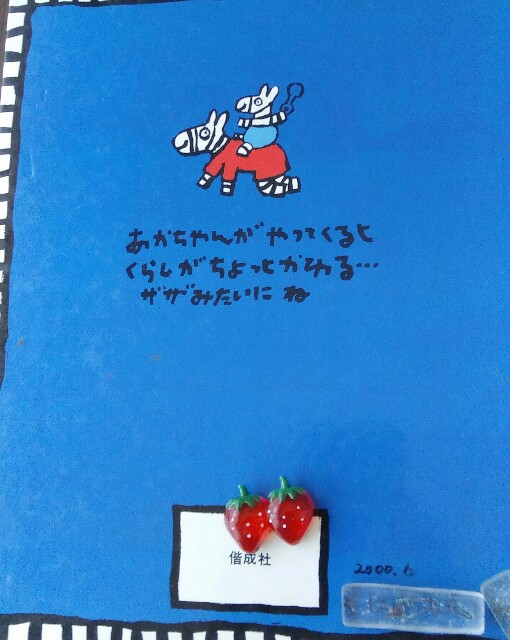 あかちゃんが やってくると
くらしが ちょっと かわる…
ザザみたいに ね
偕成社
2000.6